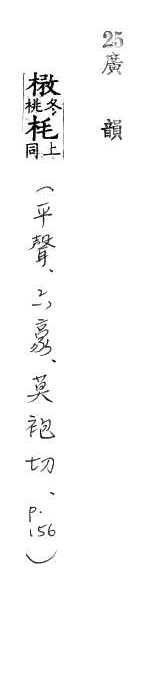 25 廣韻
㮘冬桃枆上同(平聲、六豪、莫袍切、p.156)